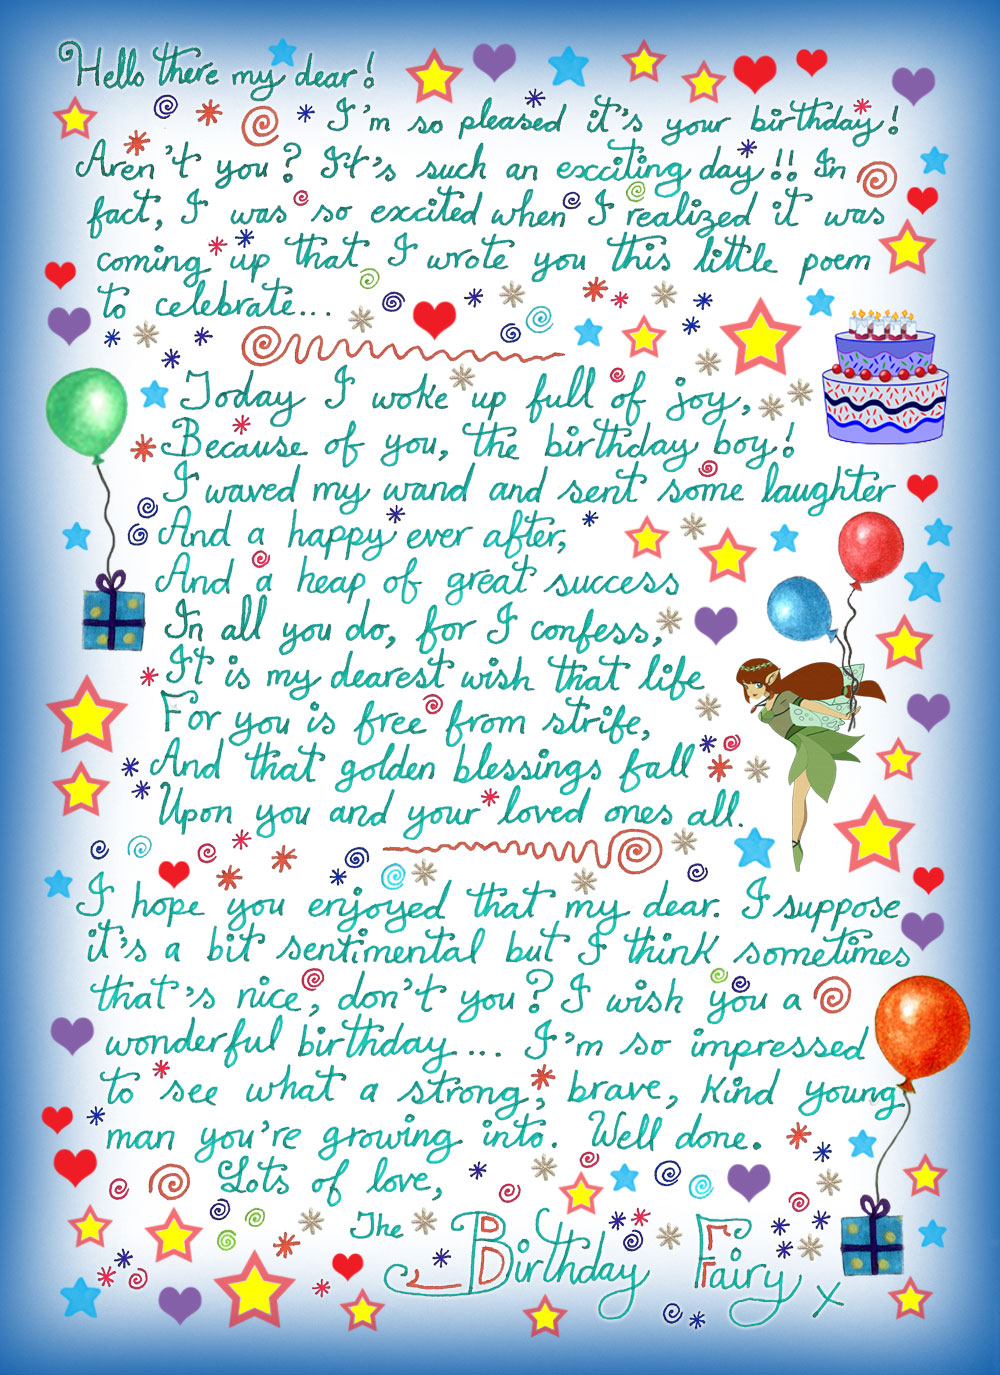 Hello there my dear!
I'm so pleased it's your birthday!
Aren't you? It's such an exciting day!! In
fact, I was so excited when I realized it was
coming up that I wrote you this little poem
to celebrate...
Today I woke up full of joy,
Because of you, the birthday boy!
I waved my wand and sent some laughter
And a happy ever after,
And a heap of great success
In all you do, for I confess,
It is my dearest wish that life
For you is free from strife,
And that golden blessings fall
Upon you and your loved ones all.
I hope you enjoyed that my dear. I suppose
it's a bit sentimental but I think sometimes
that's nice, don't you? I wish you a
wonderful birthday... I'm so impressed
to see what a strong, brave, kind young
man you're growing into. Well done.
Lots of love,
The Birthday Fairy x